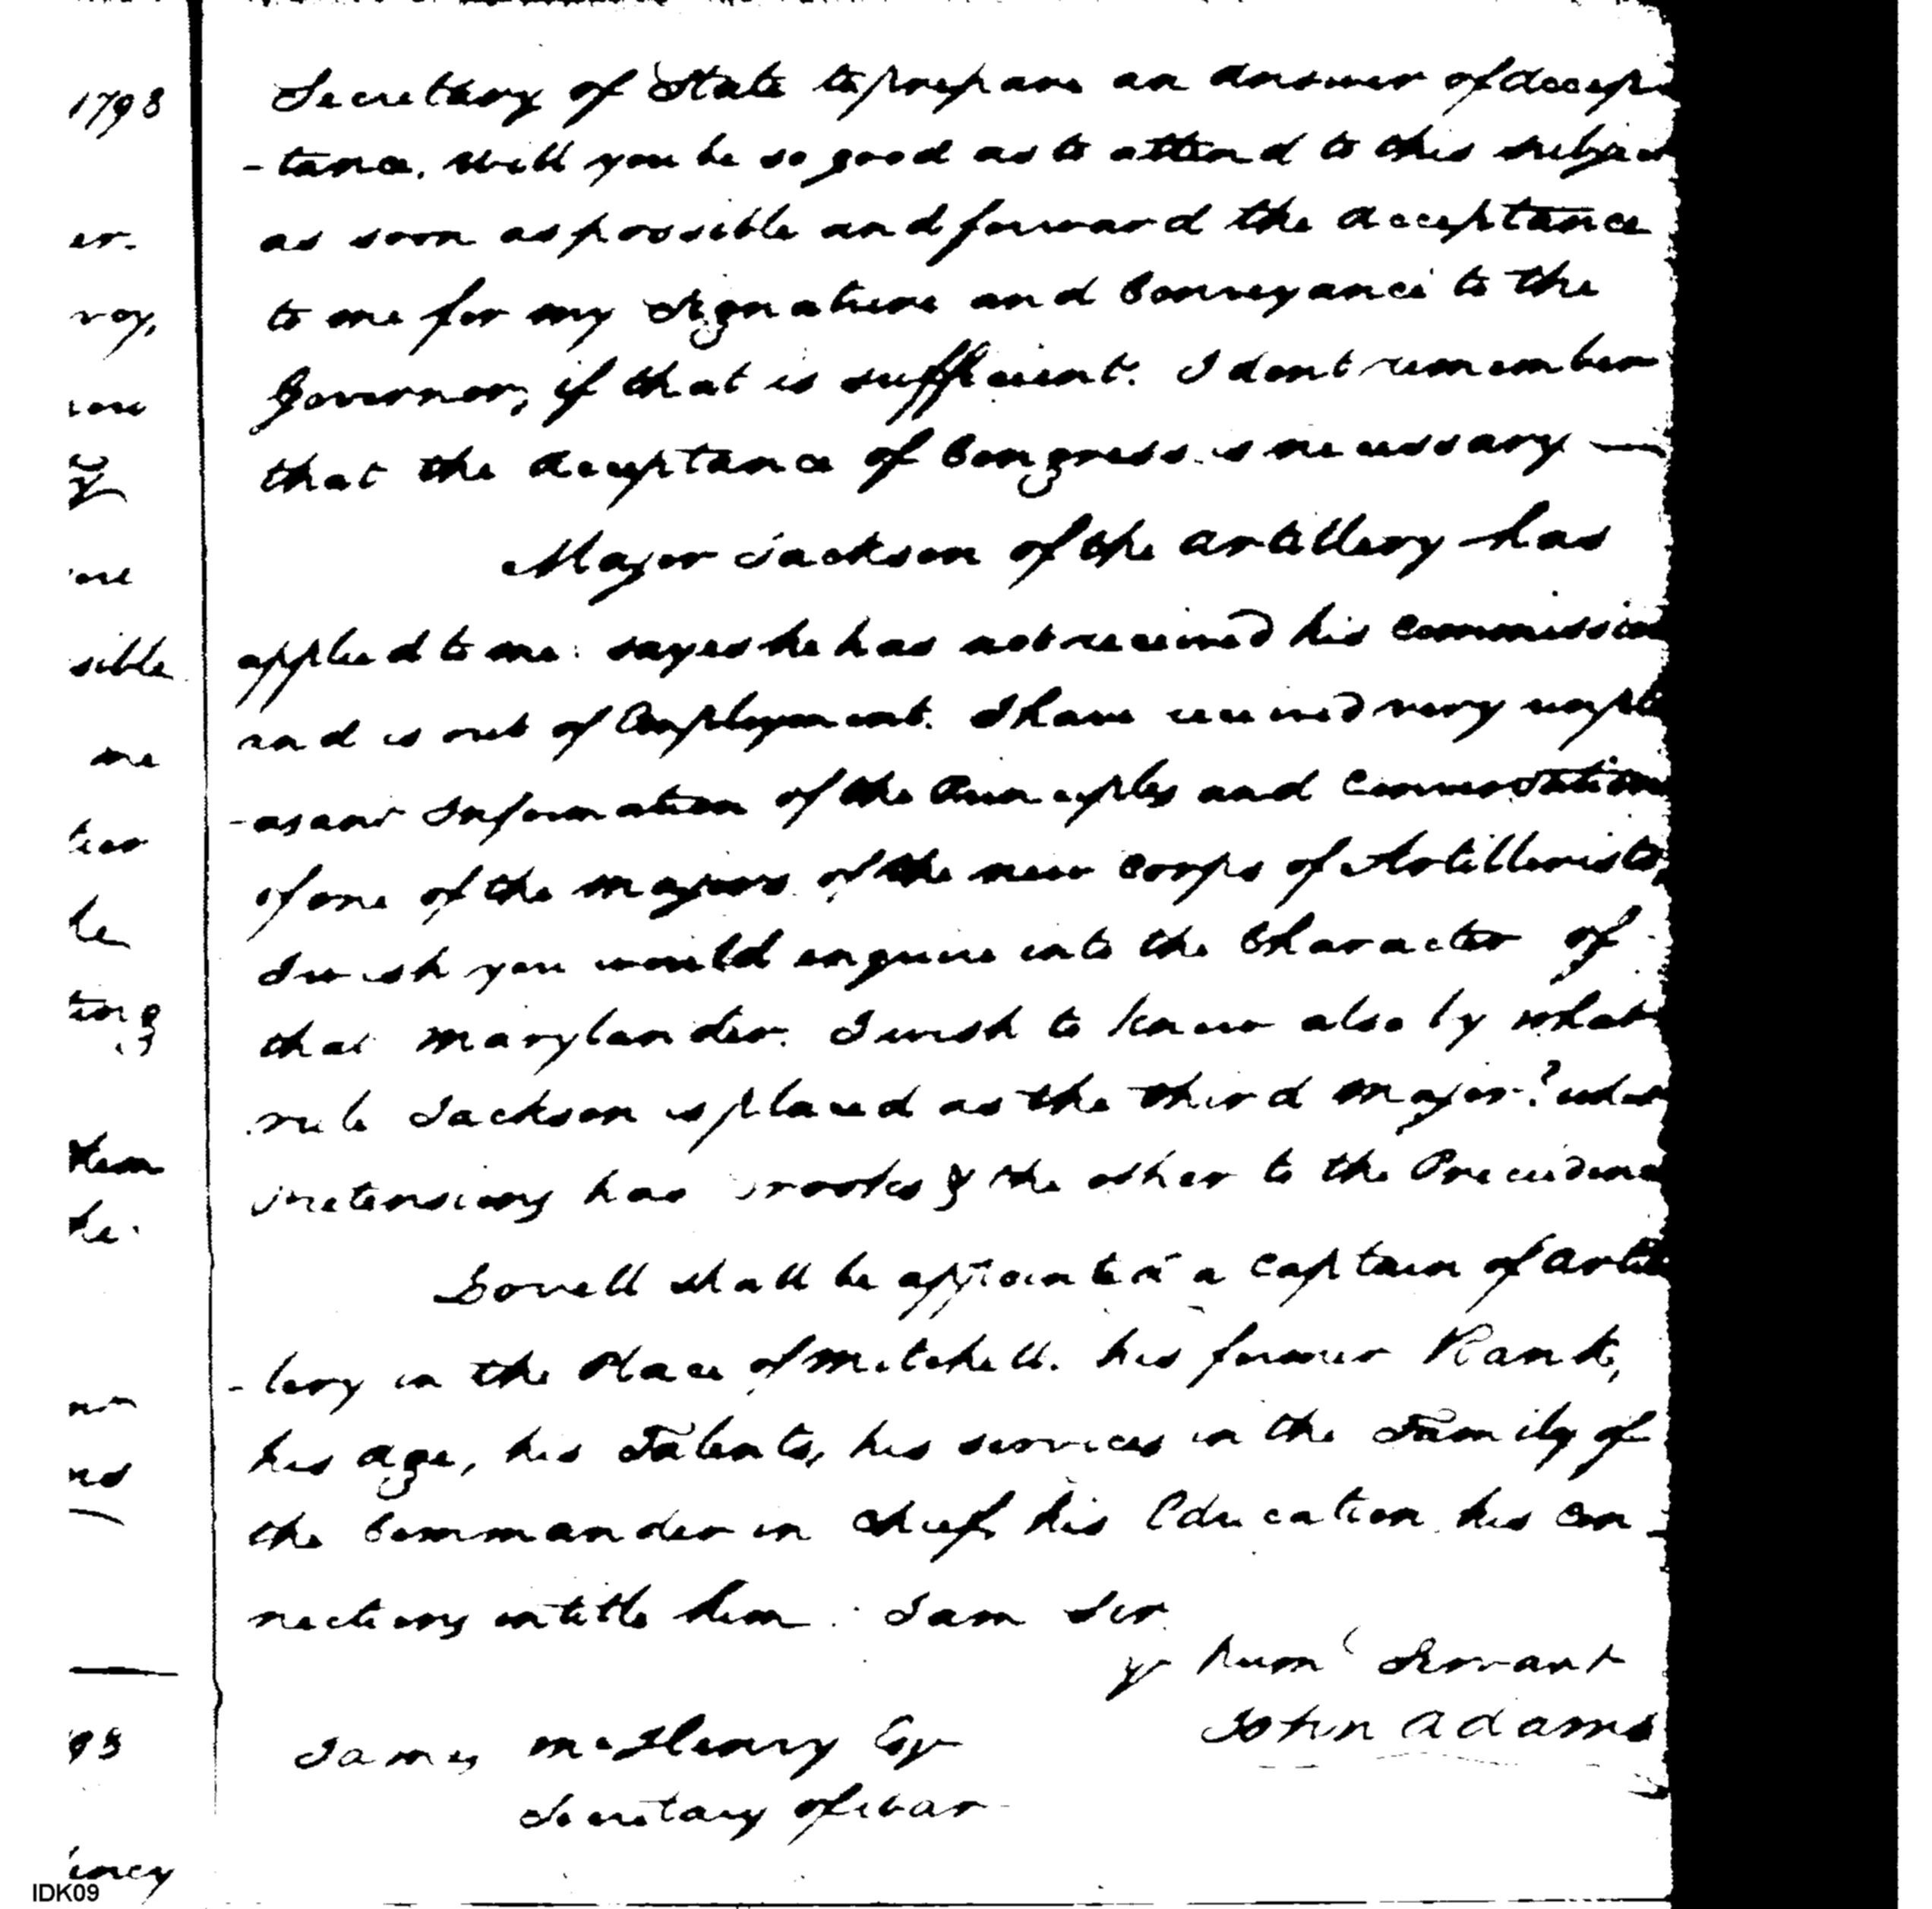 1798
er.
voy,
sible
me
be
ting
them
he
98
incy
Secretary of State to prepare an answer of accep
-tance. Will you be so good as to attend to this subject
as soon as possible and forward the acceptance
to me for my Signature and Conveyance to the
Governor, if that is sufficient. I dont remember
that the acceptance of Congress is necessary —
Major Jackson of the artillery has
applied to me: sayes he has not received his commission
and is out of Employment. I have received very unple
-asant Information of the Principles and Conversation
of one of the majors of the new Corps of Artillerists,
I wish you would enquire into the Character of
that Marylander. I wish to know also by what
rule Jackson is placed as the third Major? what
pretensions has & the other to the Precedence
Lovell shall be appointed a Captain of Artil
-lery in the Place of Mitchell. his former Rank,
his age, his Talents, his services in the Family of
the Commander in Chief, his Education his con-
nections intitle him. I am Sir
yr huml Servant
John Adams
James McHenry Esqr
Secretary of War
IDK09